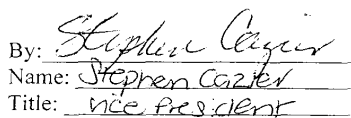 By: Stephen Cazier
Name: Stephen Cazier
Title: Vice President